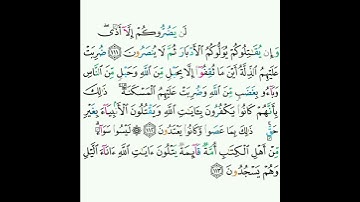 لَن يَضُرُّوكُمْ إِلَّآ أَذًى ۖ
وَإِن يُقَـٰتِلُوكُمْ يُوَلُّوكُمُ ٱلْأَدْبَارَ ثُمَّ لَا يُنصَرُونَ ١١١ ضُرِبَتْ
عَلَيْهِمُ ٱلذِّلَّةُ أَيْنَ مَا ثُقِفُوٓا۟ إِلَّا بِحَبْلٍ مِّنَ ٱللَّهِ وَحَبْلٍ مِّنَ ٱلنَّاسِ
وَبَآءُو بِغَضَبٍ مِّنَ ٱللَّهِ وَضُرِبَتْ عَلَيْهِمُ ٱلْمَسْكَنَةُ ۚ ذَٰلِكَ
بِأَنَّهُمْ كَانُوا۟ يَكْفُرُونَ بِـَٔايَـٰتِ ٱللَّهِ وَيَقْتُلُونَ ٱلْأَنۢبِيَآءَ بِغَيْرِ
حَقٍّ ۚ ذَٰلِكَ بِمَا عَصَوا۟ وَّكَانُوا۟ يَعْتَدُونَ ١١٢ ۞ لَيْسُوا۟ سَوَآءً ۗ
مِّنْ أَهْلِ ٱلْكِتَـٰبِ أُمَّةٌ قَآئِمَةٌ يَتْلُونَ ءَايَـٰتِ ٱللَّهِ ءَانَآءَ ٱلَّيْلِ
وَهُمْ يَسْجُدُونَ ١١٣